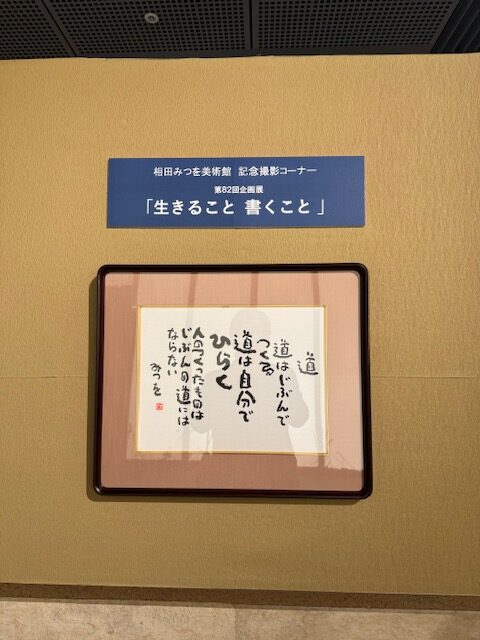 相田みつを美術館 記念撮影コーナー
第82回企画展
「生きること 書くこと」
道
道はじぶんで
つくる
道は自分で
ひらく
人のつくったものは
じぶんの道には
ならない
みつを